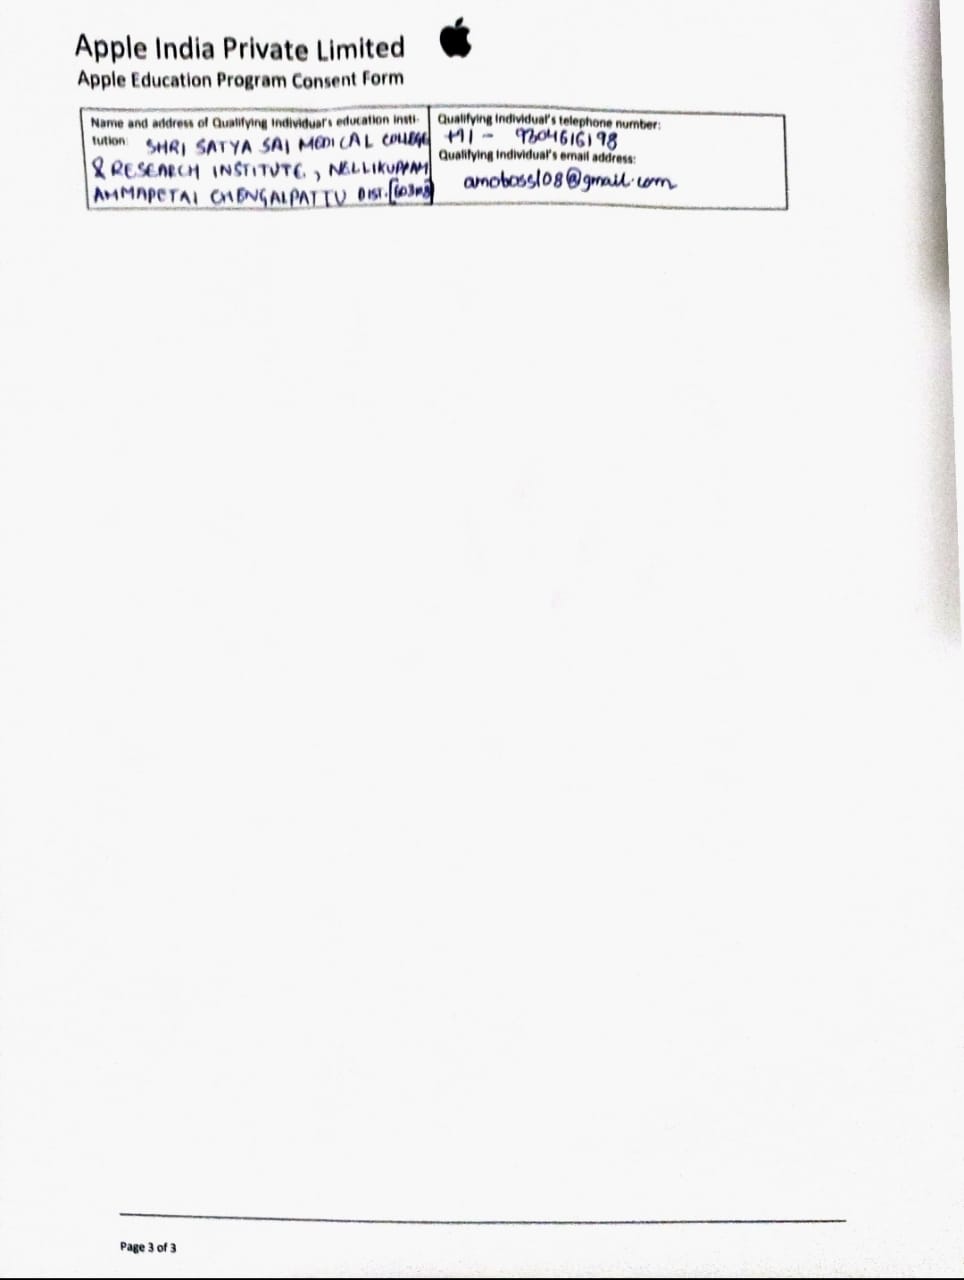 Apple India Private Limited
Apple Education Program Consent Form
Name and address of Qualifying Individual's education insti-
tution: SHRI SATYA SAI MEDICAL COLLEGE
& RESEARCH INSTITUTE, NELLIKUPPAM
AMMAPETAI CHENGALPATTU DIST.
Qualifying Individual's telephone number:
+91 - 9304616198
Qualifying Individual's email address:
amoboss108@gmail.com
Page 3 of 3